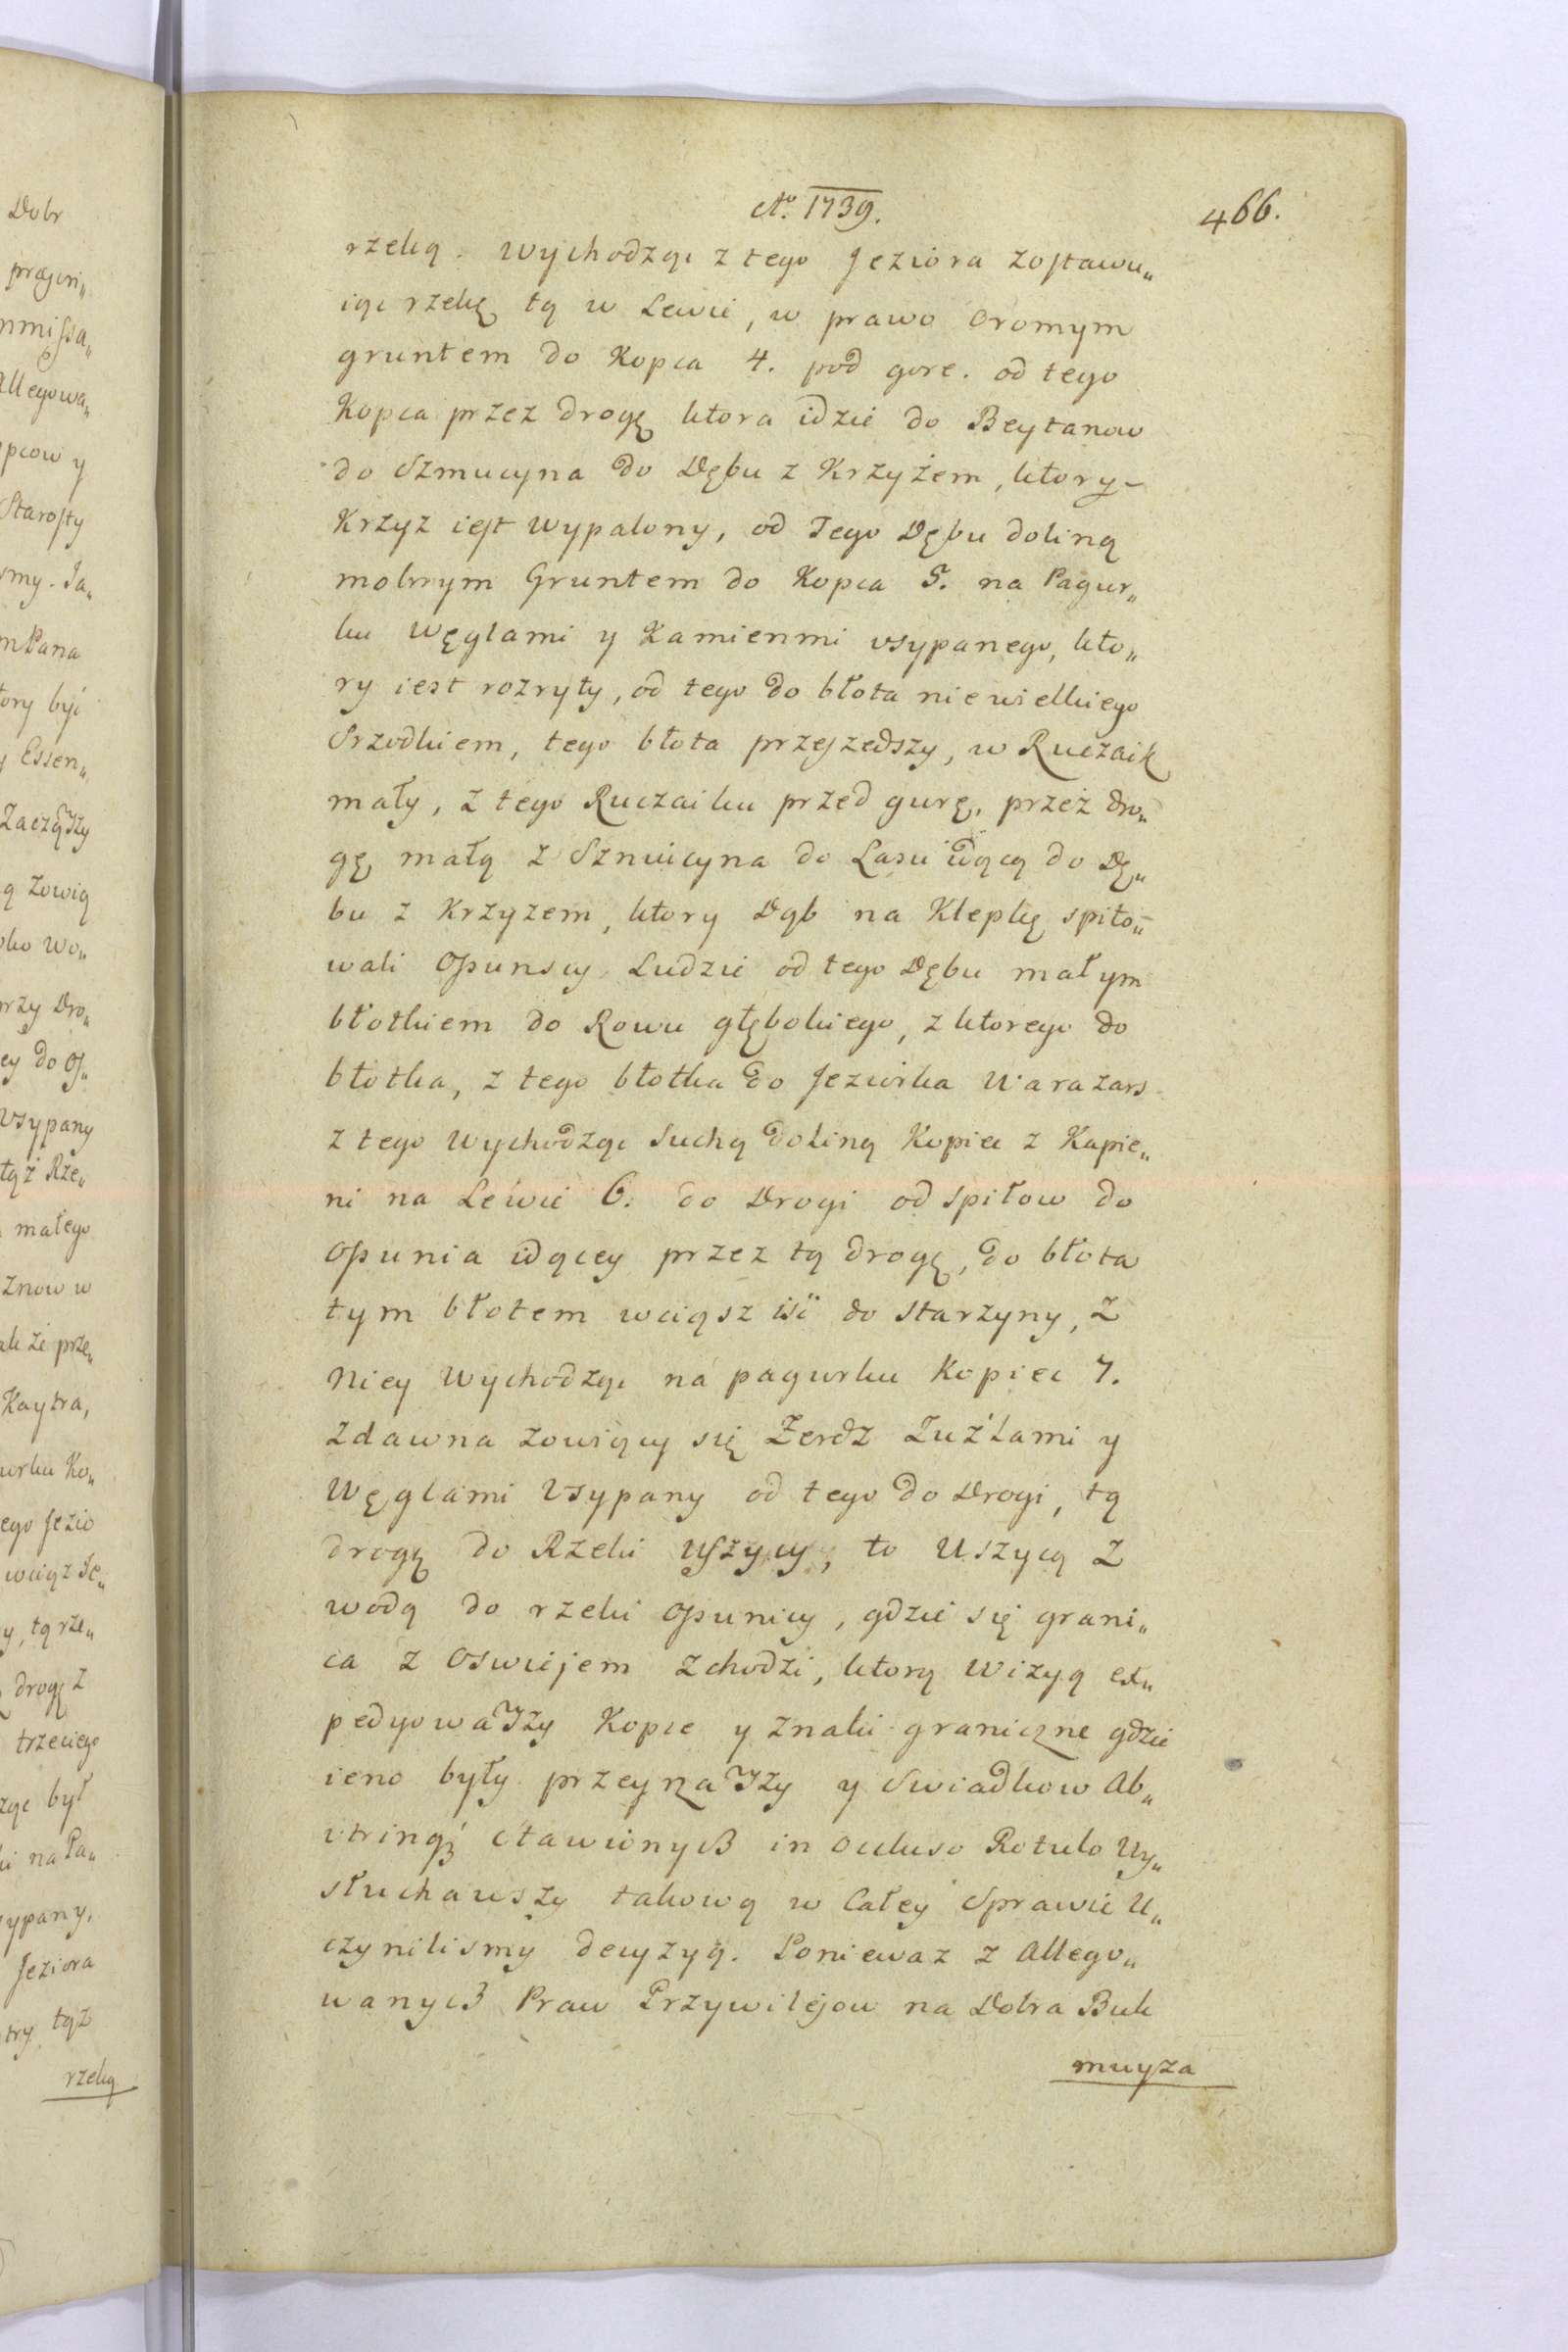 Dobr
Allegowa„
pcow y
Starosty
smy. Ja„
m Pana
tory być
y Essen„
Zacząwszy
ą Zowią
oko Wo„
rzy Dro„
ey do Os„
Vsypany
tąż Rze„
małego
Znow w
Kaytra,
urku Ko„
ego Jezio
wciąż Je„
y, tą rze„
drogę Z
trzeciego
ząc był
ki na Pa„
sypany,
Jeziora
try tąż
rzeką
Ao. 1739.
466.
rzeką. wychodząc z tego Jeziora zostawu„
iąc rzekę tą w Lewie, w prawo oromym
gruntem do Kopca 4. pod gore. od tego
Kopca przez drogę ktora idzie do Beytanow
do Szmucyna do Dębu z Krzyżem, ktory
Krzyz iest wypalony, od Tego Dębu doliną
mokrym Gruntem do Kopca 5. na Pagur„
ku Węglami y Kamienmi vsypanego, kto„
ry iest rozryty, od tego do błota niewielkiego
Srzodkiem, tego błota przeszedszy, w Ruczaik
mały, z tego Ruczaiku przed gurę, przez dro„
gę małą z Szmucyna do Lasu idącą do Dę„
bu z Krzyzem, ktory Dąb na Klepkę spiło„
wali Opunscy Ludzie od tego Dębu małym
błotkiem do Rowu głębokiego, z ktorego do
błotka, z tego błotka do Jeziorka Warazars
z tego Wychodząc Suchą doliną Kopiec z Kapie„
ni na Lewie 6. do Drogi od Spiłow do
Opunia idącey przez tą drogę, do błota
tym błotem wciąsz iść do starzyny, Z
Niey Wychodząc na pagurku Kopiec 7.
Zdawna zowiący się Zerdz Zuźlami y
Węglami Vsypany od tego do Drogi, tą
drogę do Rzeki Uszycy, to Uszycą Z
wodą do rzeki Opunicy, gdzie się grani„
ca z Oswiejem Zchodzi, ktorą Wizyą ex„
pedyowawszy Kopce y Znaki graniczne gdzie
ieno były przeyznawszy y Swiadkow Ab„
vtrinq3 stawionych in ocluso Rotulo Wy„
słuchawszy takową w Całey Sprawie U„
czynilismy decyzyą. Poniewaz z Allego„
wanych Praw Przywilejow na Dobra Buk
muyza